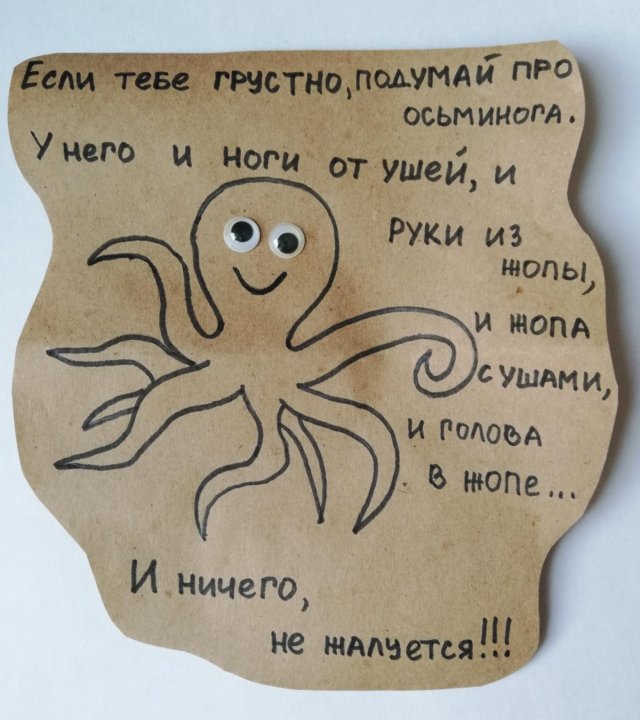 Если тебе грустно, подумай про
осьминога.
У него и ноги от ушей, и
руки из
жопы,
и жопа
с ушами,
и голова
в жопе...
И ничего,
не жалуется!!!